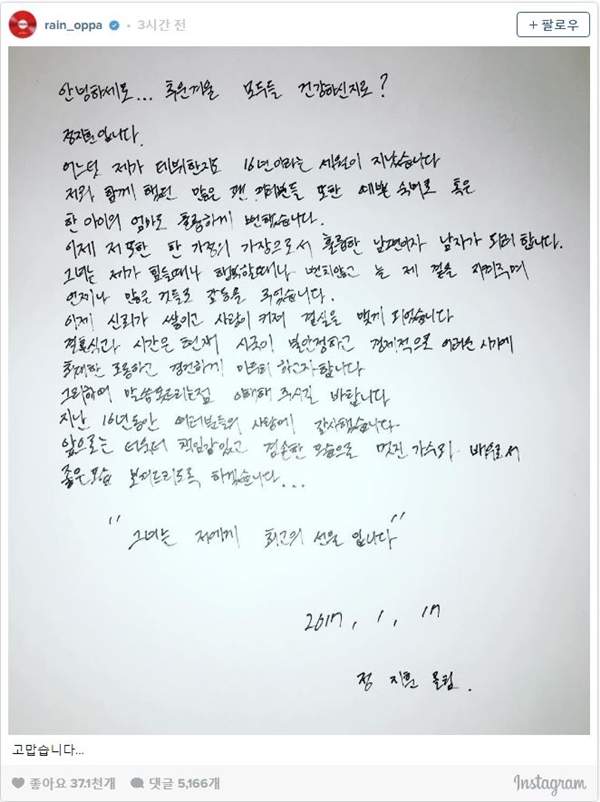 rain_oppa · 3시간 전
+ 팔로우
안녕하세요... 추운겨울 모두들 건강하신지요?
정지훈입니다.
어느덧 제가 데뷔한지도 16년이라는 세월이 지났습니다
저와 함께 했던 많은 팬 여러분들 또한 예쁜 숙녀로 혹은
한 아이의 엄마로 훌륭하게 변했습니다.
이제 저 또한 한 가정의 가장으로서 훌륭한 남편이자 남자가 되려 합니다.
그녀는 제가 힘들때나 행복할때나 변치않고 늘 제 곁을 지켜주며
언제나 많은 것들로 감동을 주었습니다.
이제 신뢰가 쌓이고 사랑이 커져 결실을 맺게 되었습니다
결혼식과 시간은 현재 시국이 불안정하고 경제적으로 어려운 시기에
최대한 조용하고 경건하게 치르려 하고자합니다
그리하여 말씀못드리는점 이해해 주시길 바랍니다
지난 16년동안 여러분들의 사랑에 감사했습니다
앞으로는 더욱더 책임감있고 겸손한 모습으로 멋진 가수와 배우로서
좋은모습 보여드리도록 하겠습니다...
"그녀는 저에게 최고의 선물 입니다"
2017, 1, 17
정 지훈 올림.
고맙습니다...
좋아요 37.1천개 댓글 5,166개
Instagram